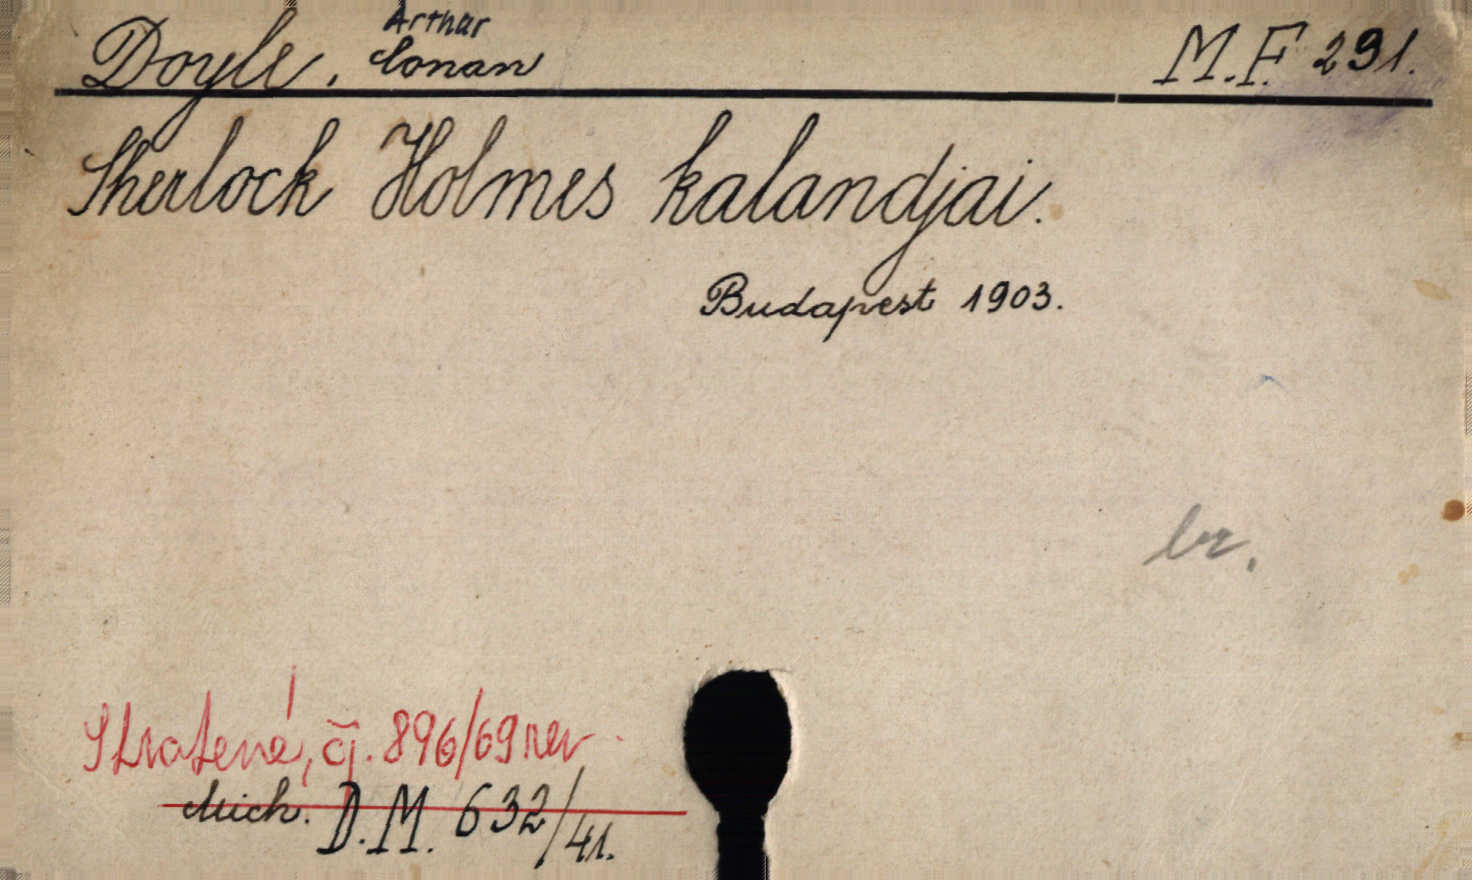 Doyle, Arthur Conan M.F. 291.
Sherlock Holmes kalandjai.
Budapest 1903.
br.
Stratené, čj. 896/69 rev.
Mich. D.M. 632/41.